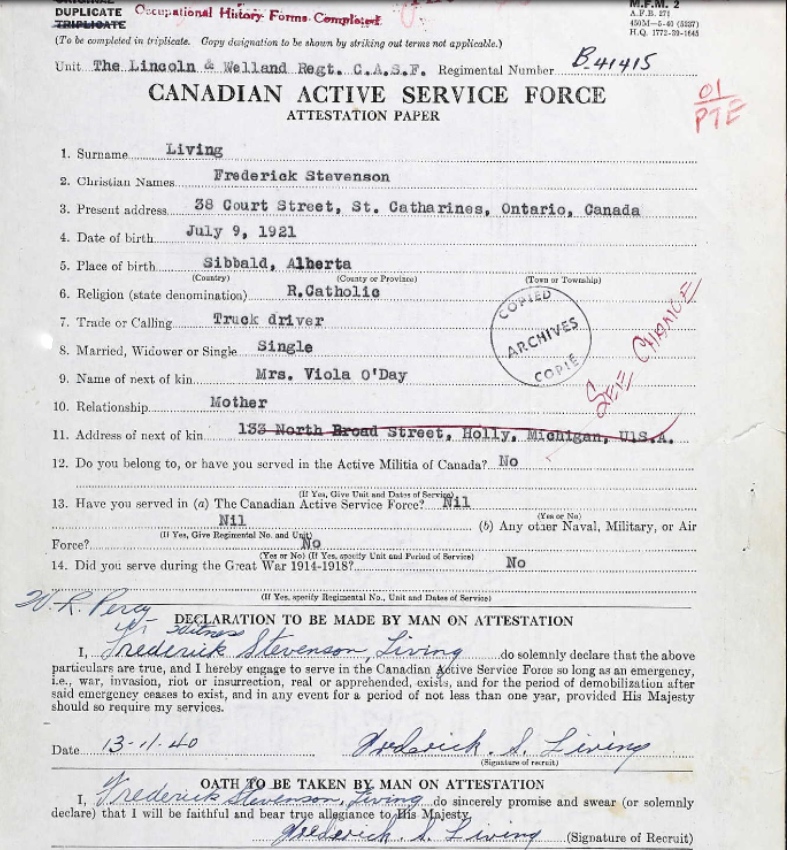 DUPLICATE
TRIPLICATE
Occupational History Forms Completed.
M.F.M. 2
A.F.B. 271
450M—5-40 (5337)
H.Q. 1772-39-1645
(To be completed in triplicate. Copy designation to be shown by striking out terms not applicable.)
Unit The Lincoln & Welland Regt. C.A.S.F. Regimental Number B.41415
CANADIAN ACTIVE SERVICE FORCE
ATTESTATION PAPER
01
PTE
1. Surname Living
2. Christian Names Frederick Stevenson
3. Present address 38 Court Street, St. Catharines, Ontario, Canada
4. Date of birth July 9, 1921
5. Place of birth Sibbald, Alberta
(Country) (County or Province) (Town or Township)
6. Religion (state denomination) R.Catholic
7. Trade or Calling Truck driver
8. Married, Widower or Single Single
9. Name of next of kin Mrs. Viola O'Day
10. Relationship Mother
11. Address of next of kin 133 North Broad Street, Holly, Michigan, U.S.A.
COPIED
ARCHIVES
COPIE
SEE CHANGE
12. Do you belong to, or have you served in the Active Militia of Canada? No
(If Yes, Give Unit and Dates of Service)
13. Have you served in (a) The Canadian Active Service Force? Nil
(Yes or No)
Nil (b) Any other Naval, Military, or Air
(If Yes, Give Regimental No. and Unit)
Force? No
(Yes or No) (If Yes, specify Unit and Period of Service)
14. Did you serve during the Great War 1914-1918? No
(If Yes, specify Regimental No., Unit and Dates of Service)
W. R. Percy
Witness
DECLARATION TO BE MADE BY MAN ON ATTESTATION
I, Frederick Stevenson, Living do solemnly declare that the above
particulars are true, and I hereby engage to serve in the Canadian Active Service Force so long as an emergency,
i.e., war, invasion, riot or insurrection, real or apprehended, exists, and for the period of demobilization after
said emergency ceases to exist, and in any event for a period of not less than one year, provided His Majesty
should so require my services.
Date 13-11-40 Frederick. S. Living
(Signature of recruit)
OATH TO BE TAKEN BY MAN ON ATTESTATION
I, Frederick Stevenson, Living do sincerely promise and swear (or solemnly
declare) that I will be faithful and bear true allegiance to His Majesty.
Frederick S. Living (Signature of Recruit)